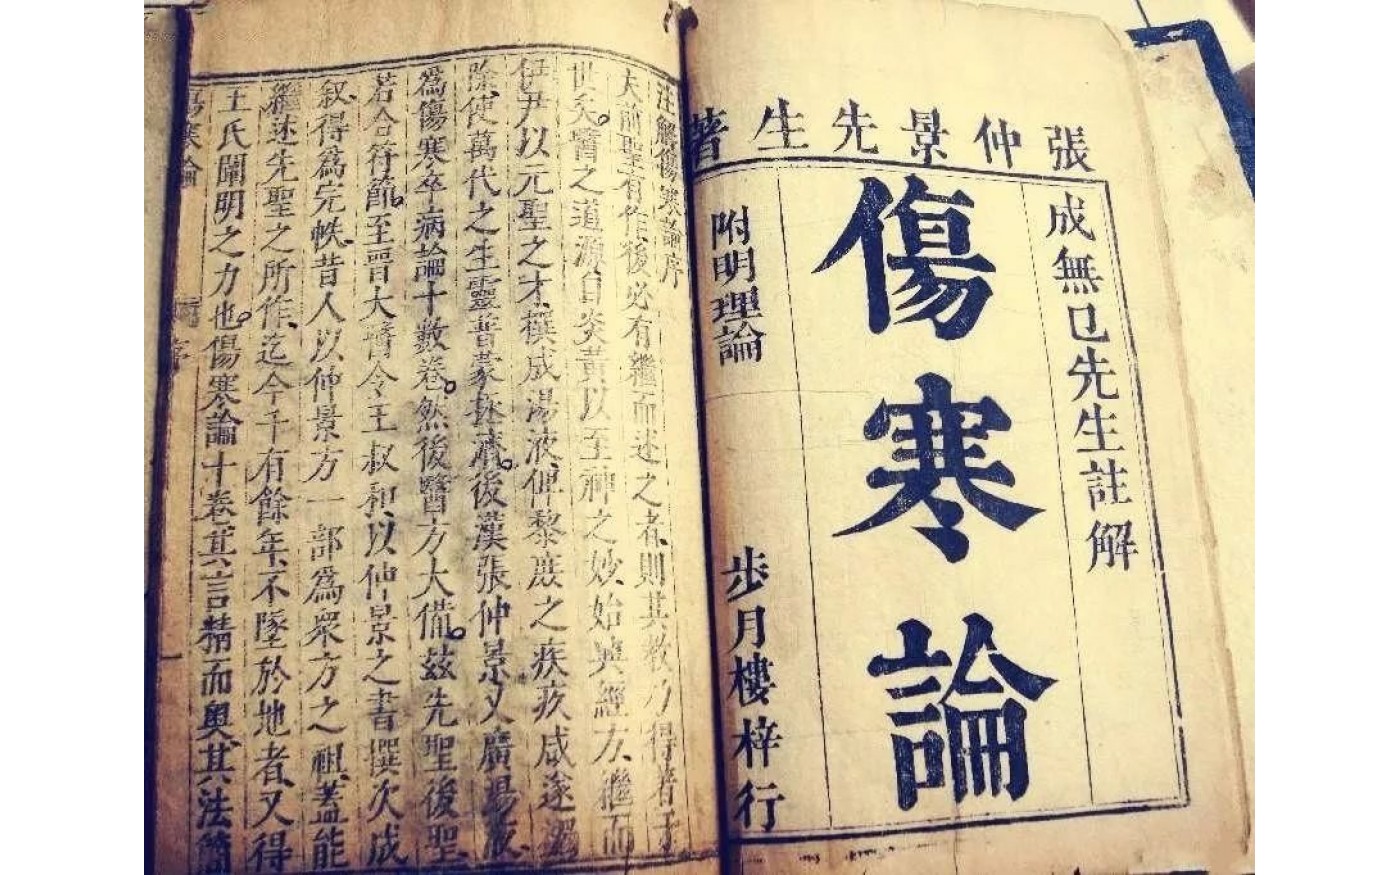 張仲景先生著
成無已先生註解
傷寒論
附明理論
步月樓梓行
注解傷寒論序
夫前聖有作後必有繼而述之者則其教乃得著于
世矣醫之道源自炎黃以至神之妙始興經方繼而
伊尹以元聖之才撰成湯液俾黎庶之疾疢咸遂蠲
除使萬代之生靈普蒙拯濟後漢張仲景又廣湯液
為傷寒卒病論十數卷然後醫方大備茲先聖後聖
若合符節至晋大醫令王叔和以仲景之書撰次成
叙得為完帙昔人以仲景方一部為衆方之祖蓋能
繼述先聖之所作迄今千有餘年不墜於地者又得
王氏闡明之力也傷寒論十卷其言精而奥其法簡
傷寒論
序